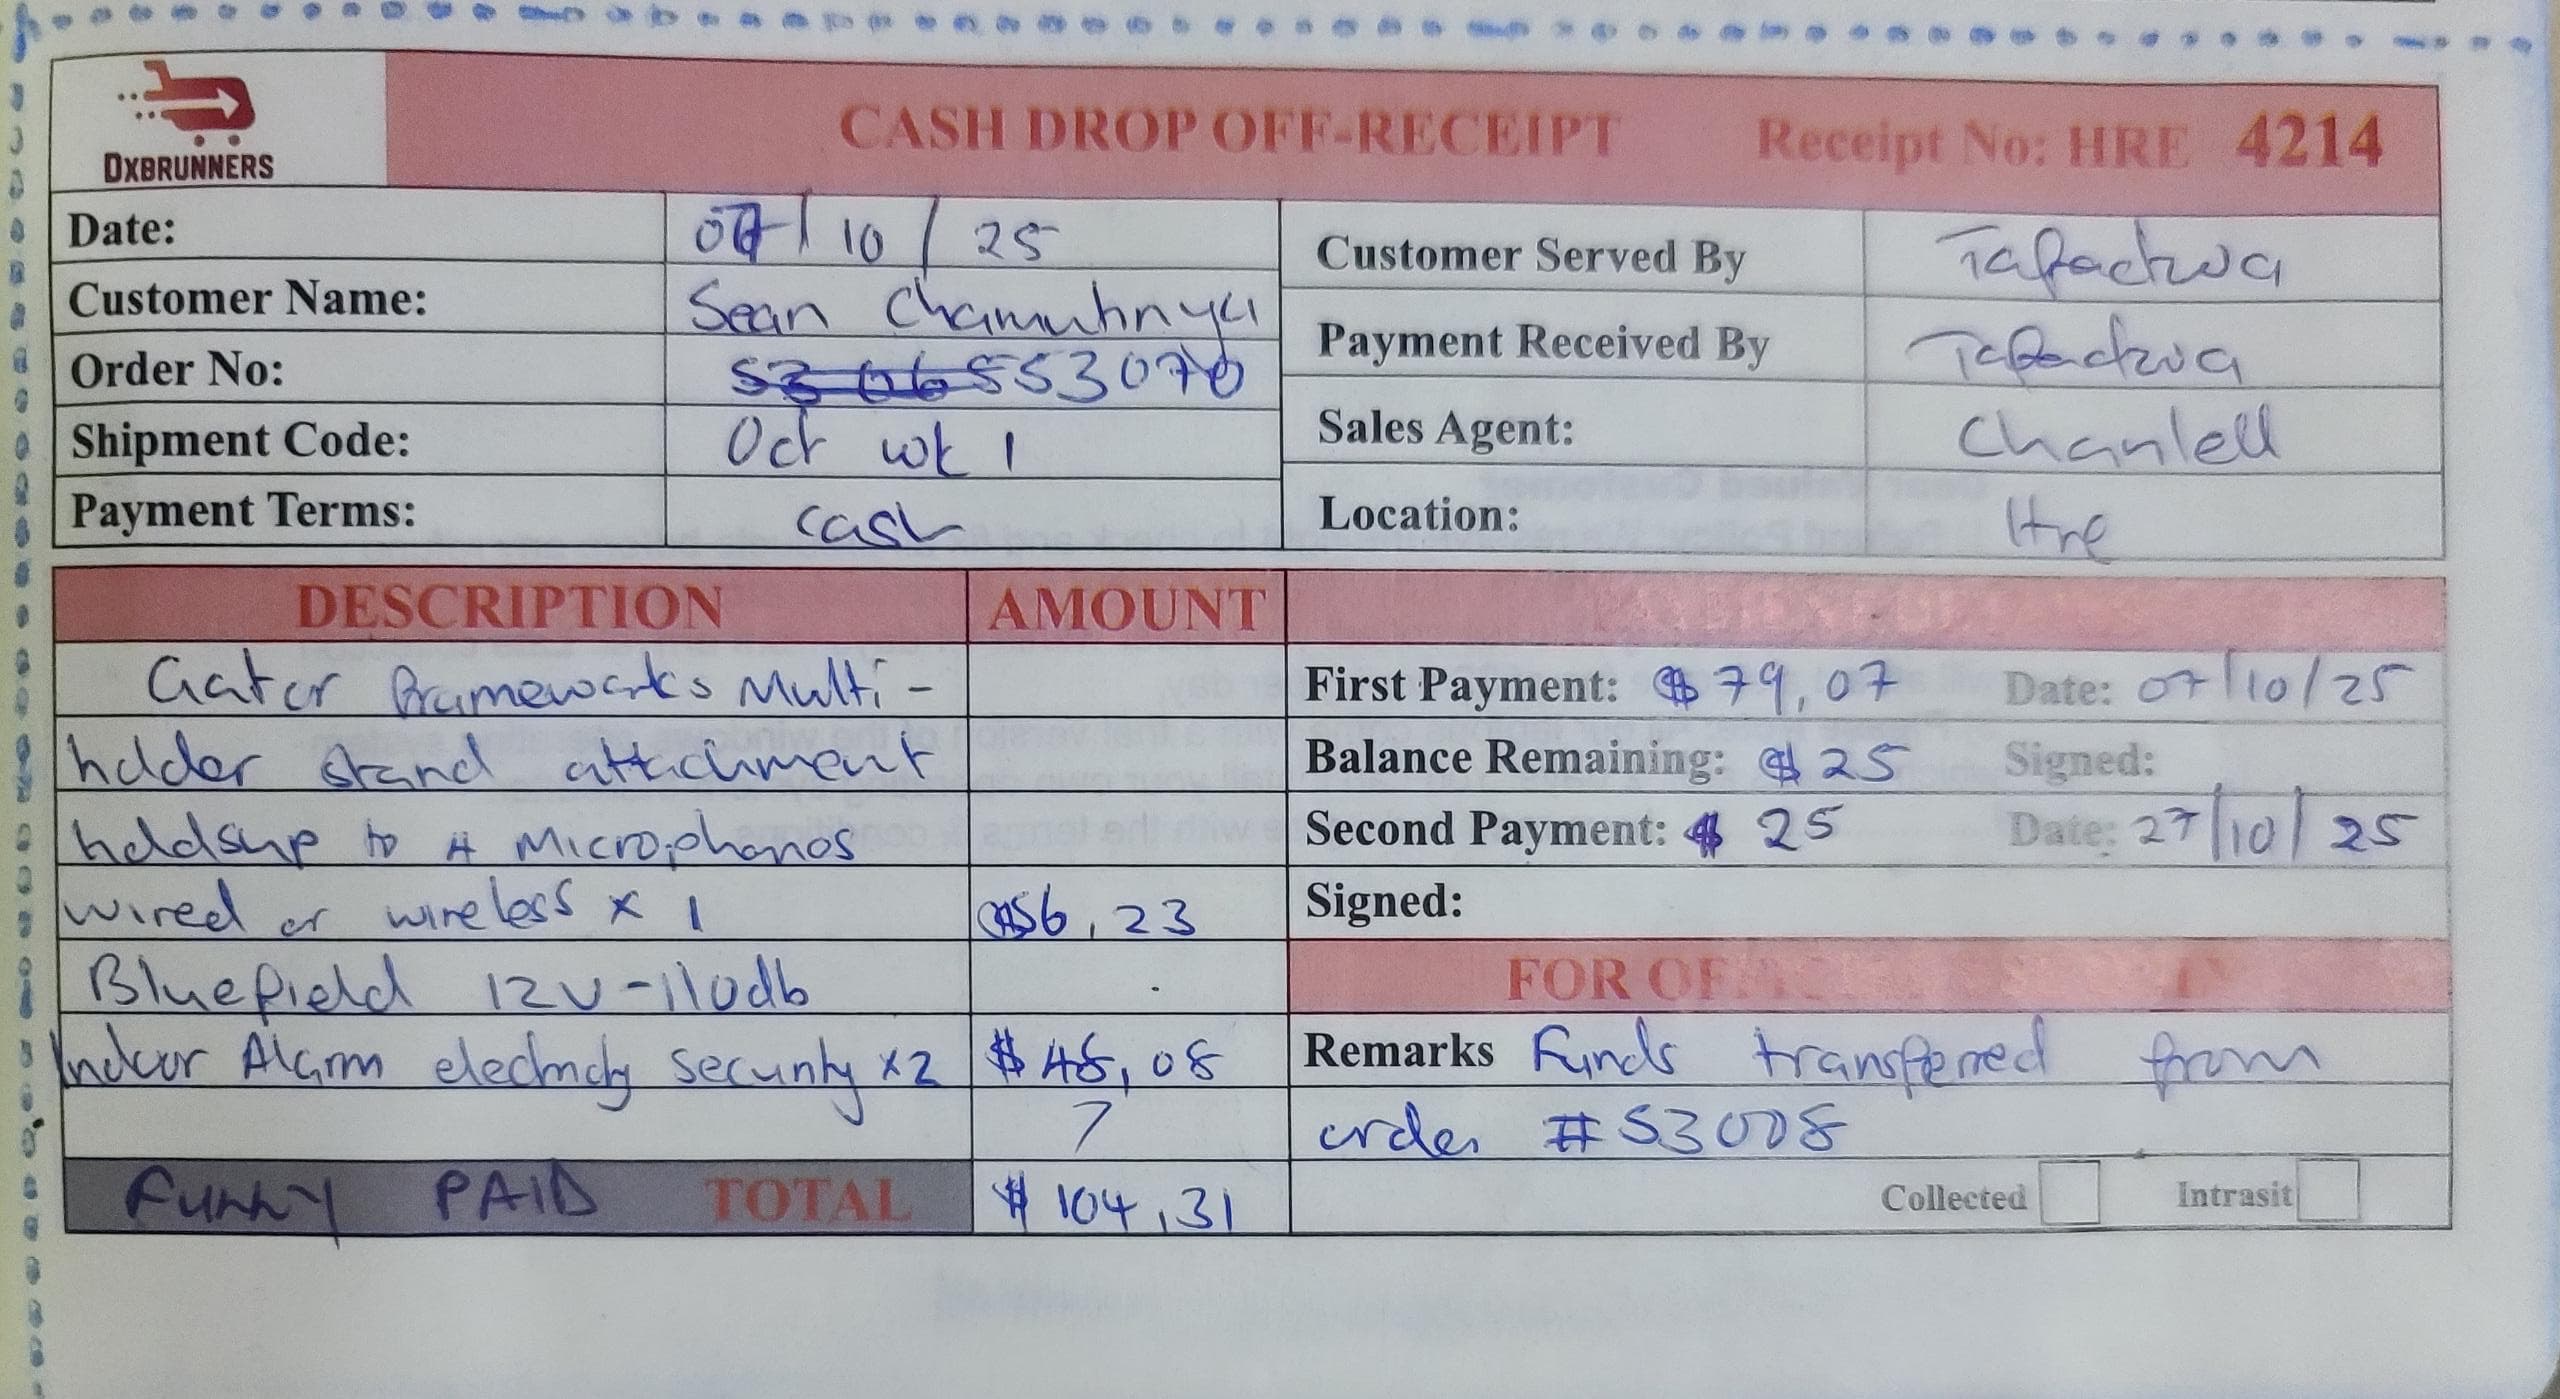 DXBRUNNERS
CASH DROP OFF-RECEIPT Receipt No: HRE 4214
Date: 07/10/25
Customer Name: Sean Chamuhnya
Order No: 553070
Shipment Code: Oct wk 1
Payment Terms: cash
Customer Served By Tafadzwa
Payment Received By Tafadzwa
Sales Agent: Chantell
Location: Hre
DESCRIPTION AMOUNT
Gator frameworks Multi-
holder stand attachment
holdsup to 4 Microphones
wired or wireless x 1 $56,23
Bluefield 12V-110db
Indoor Alarm electricity security x2 $48,08
FULLY PAID TOTAL $104,31
First Payment: $79,07 Date: 07/10/25
Balance Remaining: $25 Signed:
Second Payment: $25 Date: 27/10/25
Signed:
FOR OFFICIAL
Remarks Funds transferred from
order #53008
Collected Intrasit